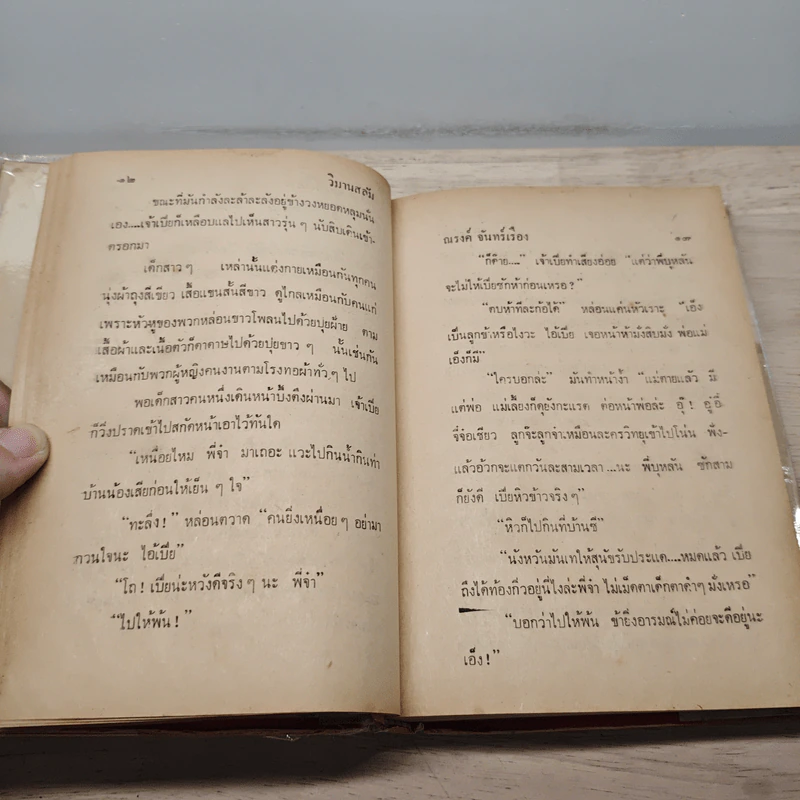 ๑๒ วิมานสลัม
ขณะที่มันกำลังละล้าละลังอยู่ข้างวงหยอดหลุมนั่น
เอง....เจ้าเบี้ยก็เหลือบแลไปเห็นสาวรุ่น ๆ นับสิบเดินเข้า-
ตรอกมา
เด็กสาว ๆ เหล่านั้นแต่งกายเหมือนกันทุกคน
นุ่งผ้าถุงสีเขียว เสื้อแขนสั้นสีขาว ดูไกลเหมือนกับคนแก่
เพราะหัวหูของพวกหล่อนขาวโพลนไปด้วยปุยฝ้าย ตาม
เสื้อผ้าและเนื้อตัวก็ดาดาษไปด้วยปุยขาว ๆ นั้นเช่นกัน
เหมือนกับพวกผู้หญิงคนงานตามโรงทอผ้าทั่ว ๆ ไป
พอเด็กสาวคนหนึ่งเดินหน้าบึ้งตึงผ่านมา เจ้าเบี้ย
ก็วิ่งปราดเข้าไปสกัดหน้าเอาไว้ทันใด
“เหนื่อยไหม พี่จ๋า มาเถอะ แวะไปกินน้ำกินท่า
บ้านน้องเสียก่อนให้เย็น ๆ ใจ”
“ทะลึ่ง!” หล่อนตวาด “คนยิ่งเหนื่อย ๆ อย่ามา
กวนใจนะ ไอ้เบี้ย”
“โถ! เบี้ยน่ะหวังดีจริง ๆ นะ พี่จ๋า”
“ไปให้พ้น!”
ณรงค์ จันทร์เรือง ๑๓
“ก็ด๊าย....” เจ้าเบี้ยทำเสียงอ่อย “แต่ว่าพี่บุหลัน
จะไม่ให้เบี้ยซักห้าก่อนเหรอ?”
“ตบห้าทีละก้อได้” หล่อนแค่นหัวเราะ “เอ็ง
เป็นลูกข้าหรือไงวะ ไอ้เบี้ย เจอหน้าห้ามั่งสิบมั่ง พ่อแม่
เอ็งก็มี”
“ใครบอกล่ะ” มันทำหน้าง้ำ “แม่ตายแล้ว มี
แต่พ่อ แม่เลี้ยงก็ดุยังกะแรด ต่อหน้าพ่อล่ะ อุ๊!
จี๋จ๋อเชียว ลูกจ๊ะลูกจ๋าเหมือนละครวิทยุเข้าไปโน่น พึ่ง-
แล้วอ้วกจะแตกวันละสามเวลา...นะ พี่บุหลัน ซักสาม
ก็ยังดี เบี้ยหิวข้าวจริง ๆ”
“หิวก็ไปกินที่บ้านซี”
“นังหวันมันเทให้สุนัขรับประแด....หมดแล้ว เบี้ย
ถึงได้ท้องกิ่วอยู่นี่ไงล่ะพี่จ๋า ไม่เม็ดตาเด็กตาดำๆ มั่งเหรอ”
“บอกว่าไปให้พ้น ข้ายิ่งอารมณ์ไม่ค่อยจะดีอยู่นะ
เอ็ง!”